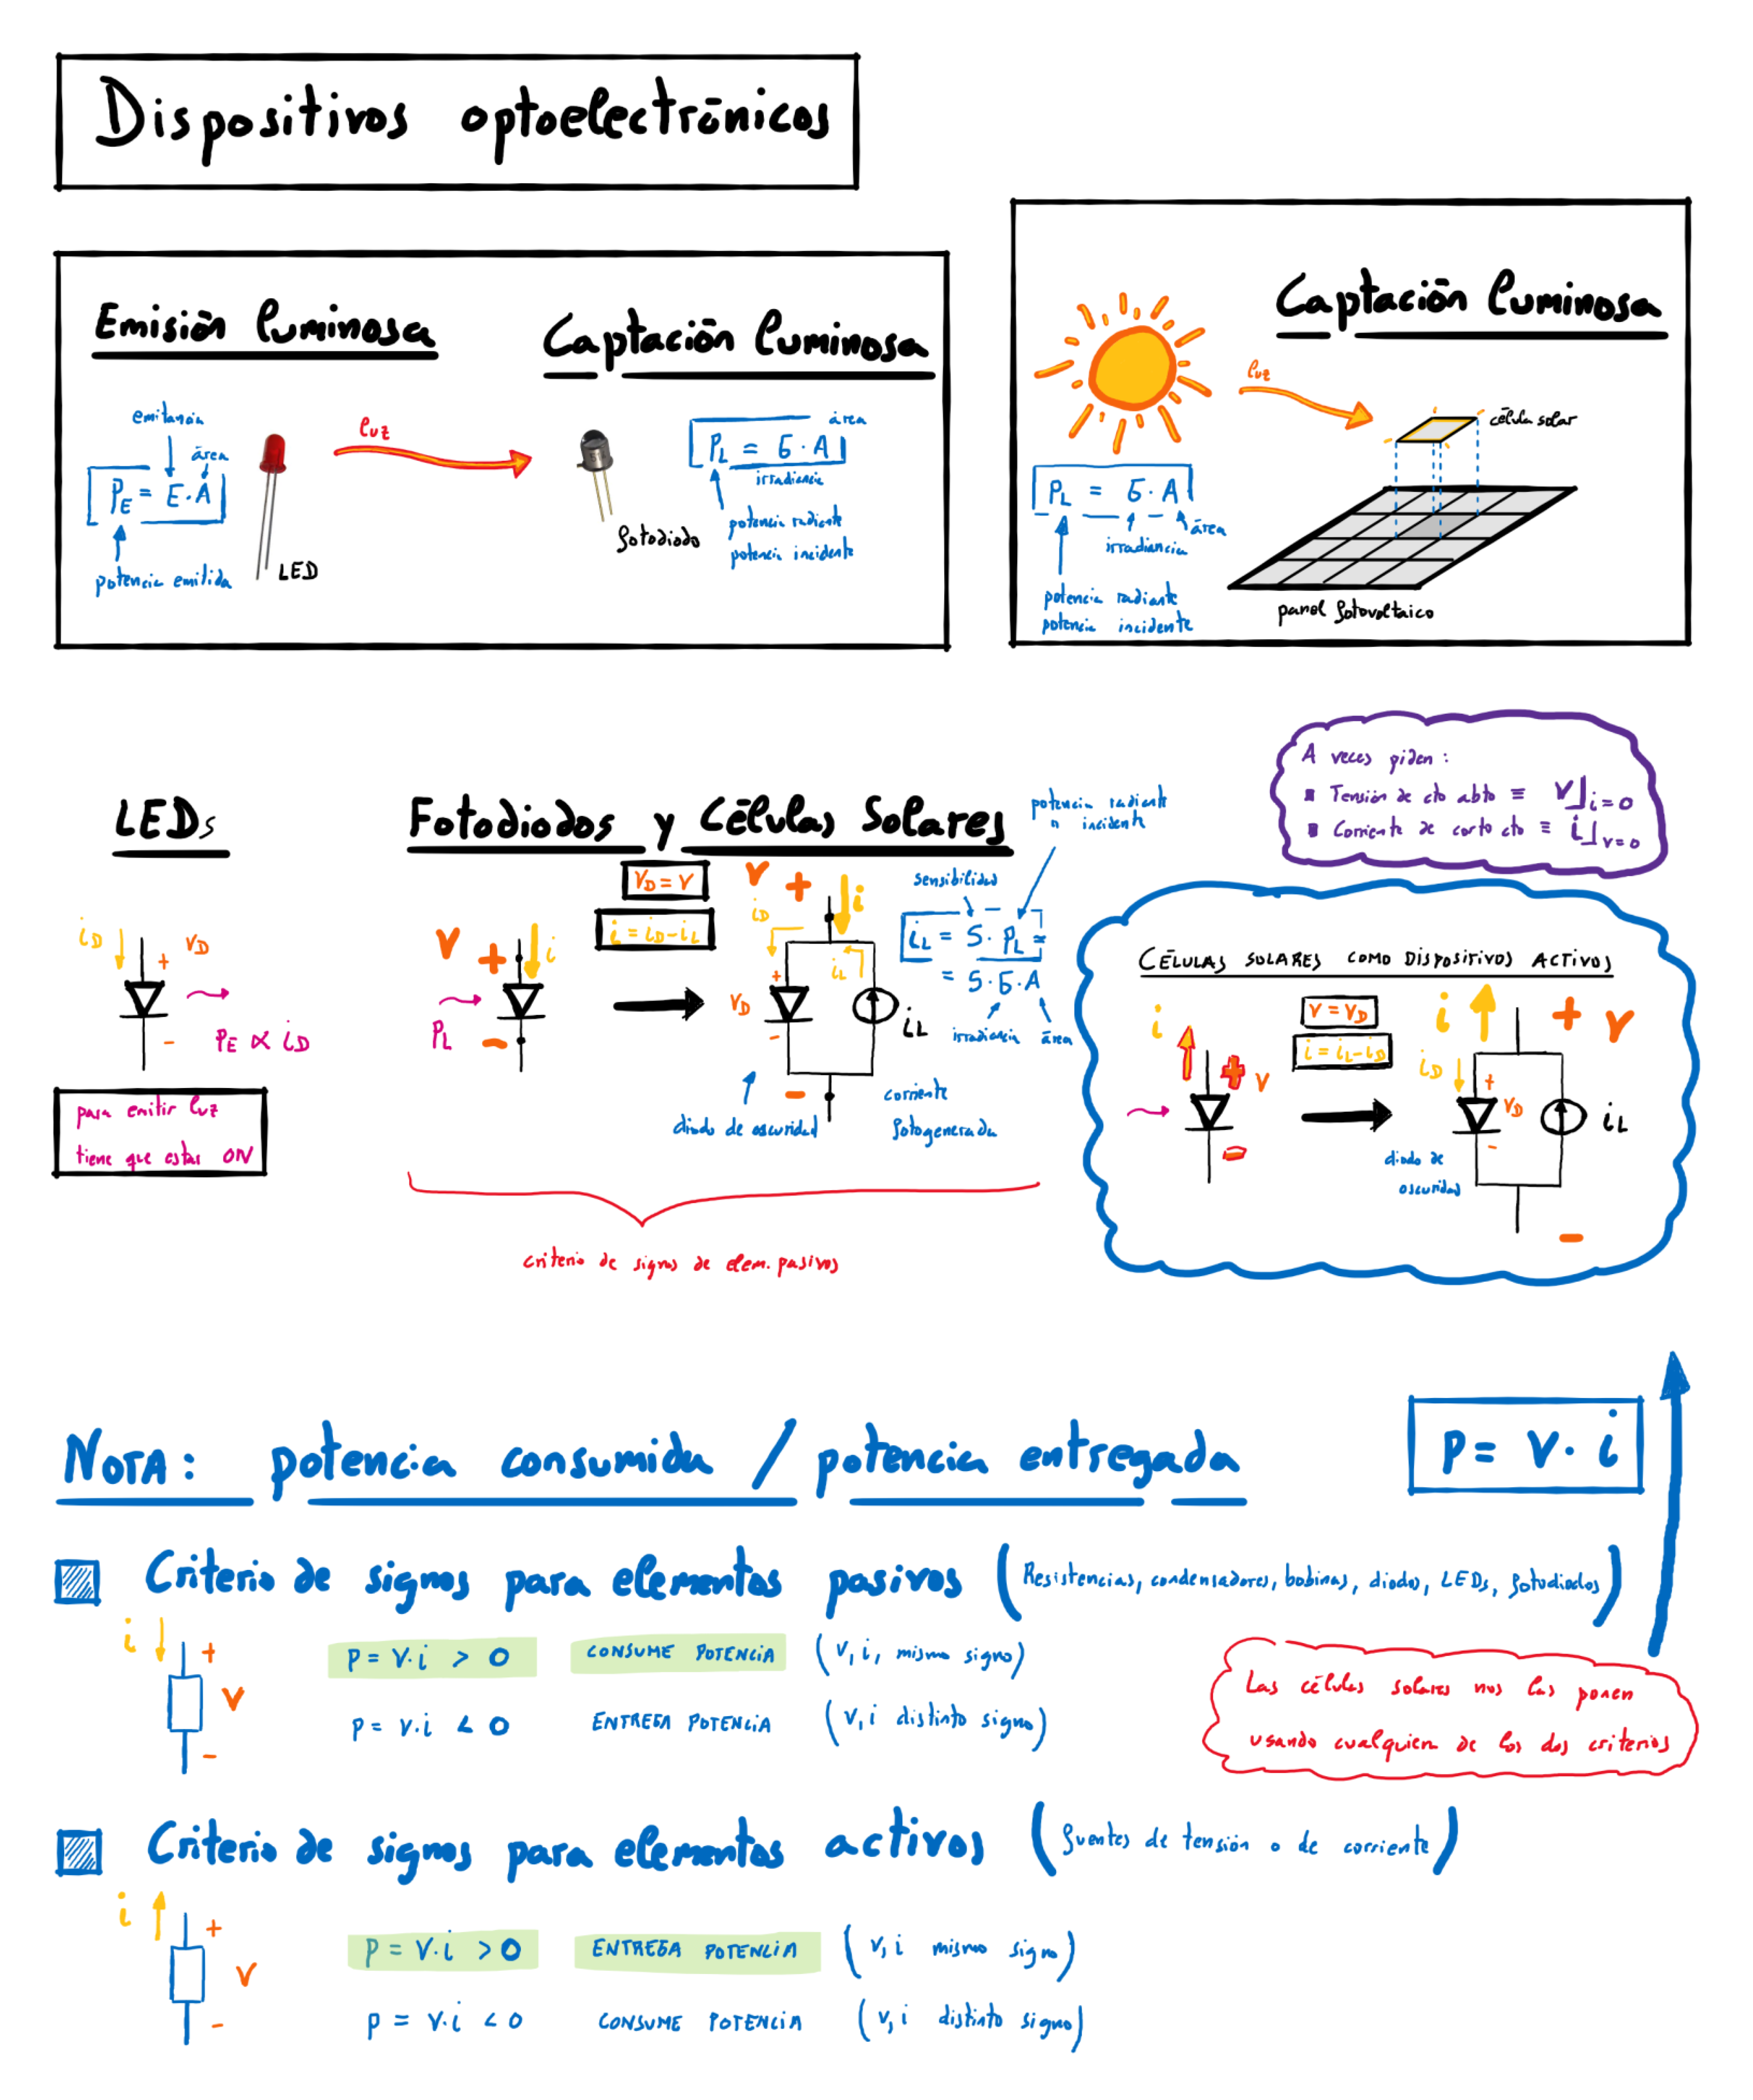 Dispositivos optoelectrónicos
Emisión luminosa
emitancia
área
PE = E·A
potencia emitida
LED
luz
Captación luminosa
fotodiodo
área
PL = G·A
irradiancia
potencia radiante
potencia incidente
Captación luminosa
luz
célula solar
PL = G·A
área
irradiancia
potencia radiante
potencia incidente
panel fotovoltaico
A veces piden:
Tensión de cto abto ≡ V⌋i=0
Corriente de corto cto ≡ i⌋v=0
LEDs
iD
vD
+
-
PE ∝ iD
para emitir luz
tiene que estar ON
Fotodiodos y Células Solares
V
+
i
-
PL
vD = v
i = iD-iL
V
+
i
iD
iL
+
vD
-
iL
-
diodo de oscuridad
corriente
fotogenerada
potencia radiante
o incidente
sensibilidad
iL = S·PL =
= S·G·A
irradiancia
área
criterio de signos de elem. pasivos
CÉLULAS SOLARES COMO DISPOSITIVOS ACTIVOS
i
+
v
-
v = vD
i = iL-iD
i
+
v
iD
+
vD
-
iL
diodo de
oscuridad
-
NOTA: potencia consumida / potencia entregada
P = v·i
Criterio de signos para elementos pasivos (Resistencias, condensadores, bobinas, diodos, LEDs, fotodiodos)
i
+
v
-
p = v·i > 0 CONSUME POTENCIA (v, i, mismo signo)
p = v·i < 0 ENTREGA POTENCIA (v, i distinto signo)
Las células solares nos las ponen
usando cualquiera de los dos criterios
Criterio de signos para elementos activos (fuentes de tensión o de corriente)
i
+
v
-
p = v·i > 0 ENTREGA POTENCIA (v, i mismo signo)
p = v·i < 0 CONSUME POTENCIA (v, i distinto signo)